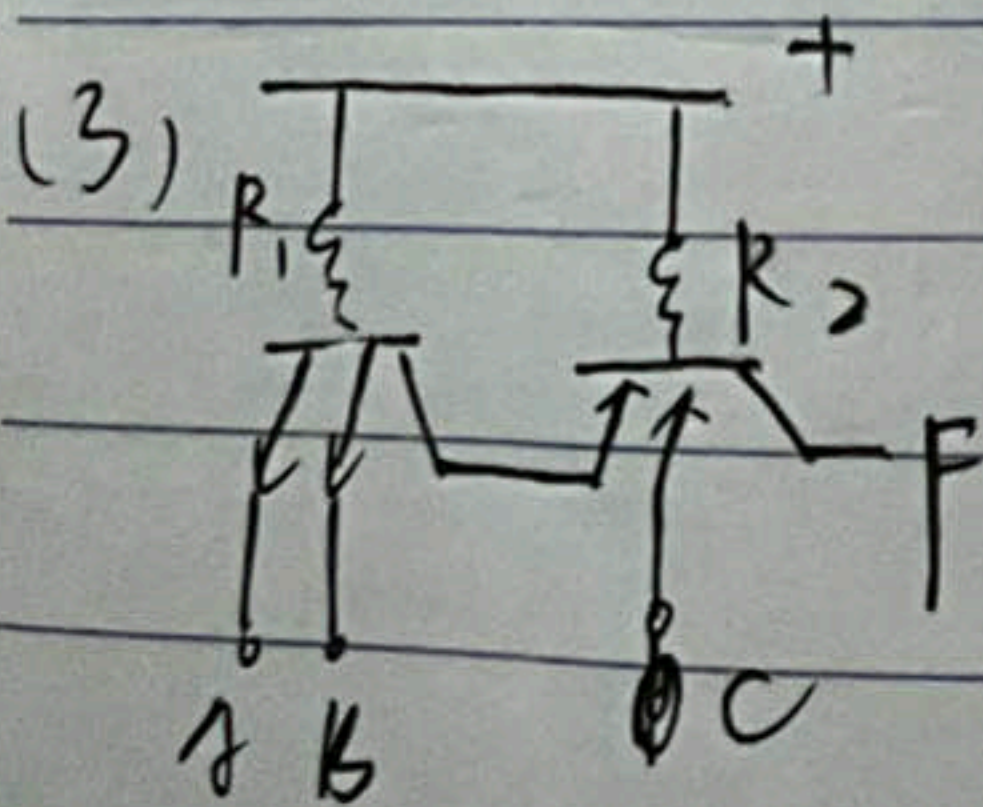 +
(3)
R1
R2
F
A B C